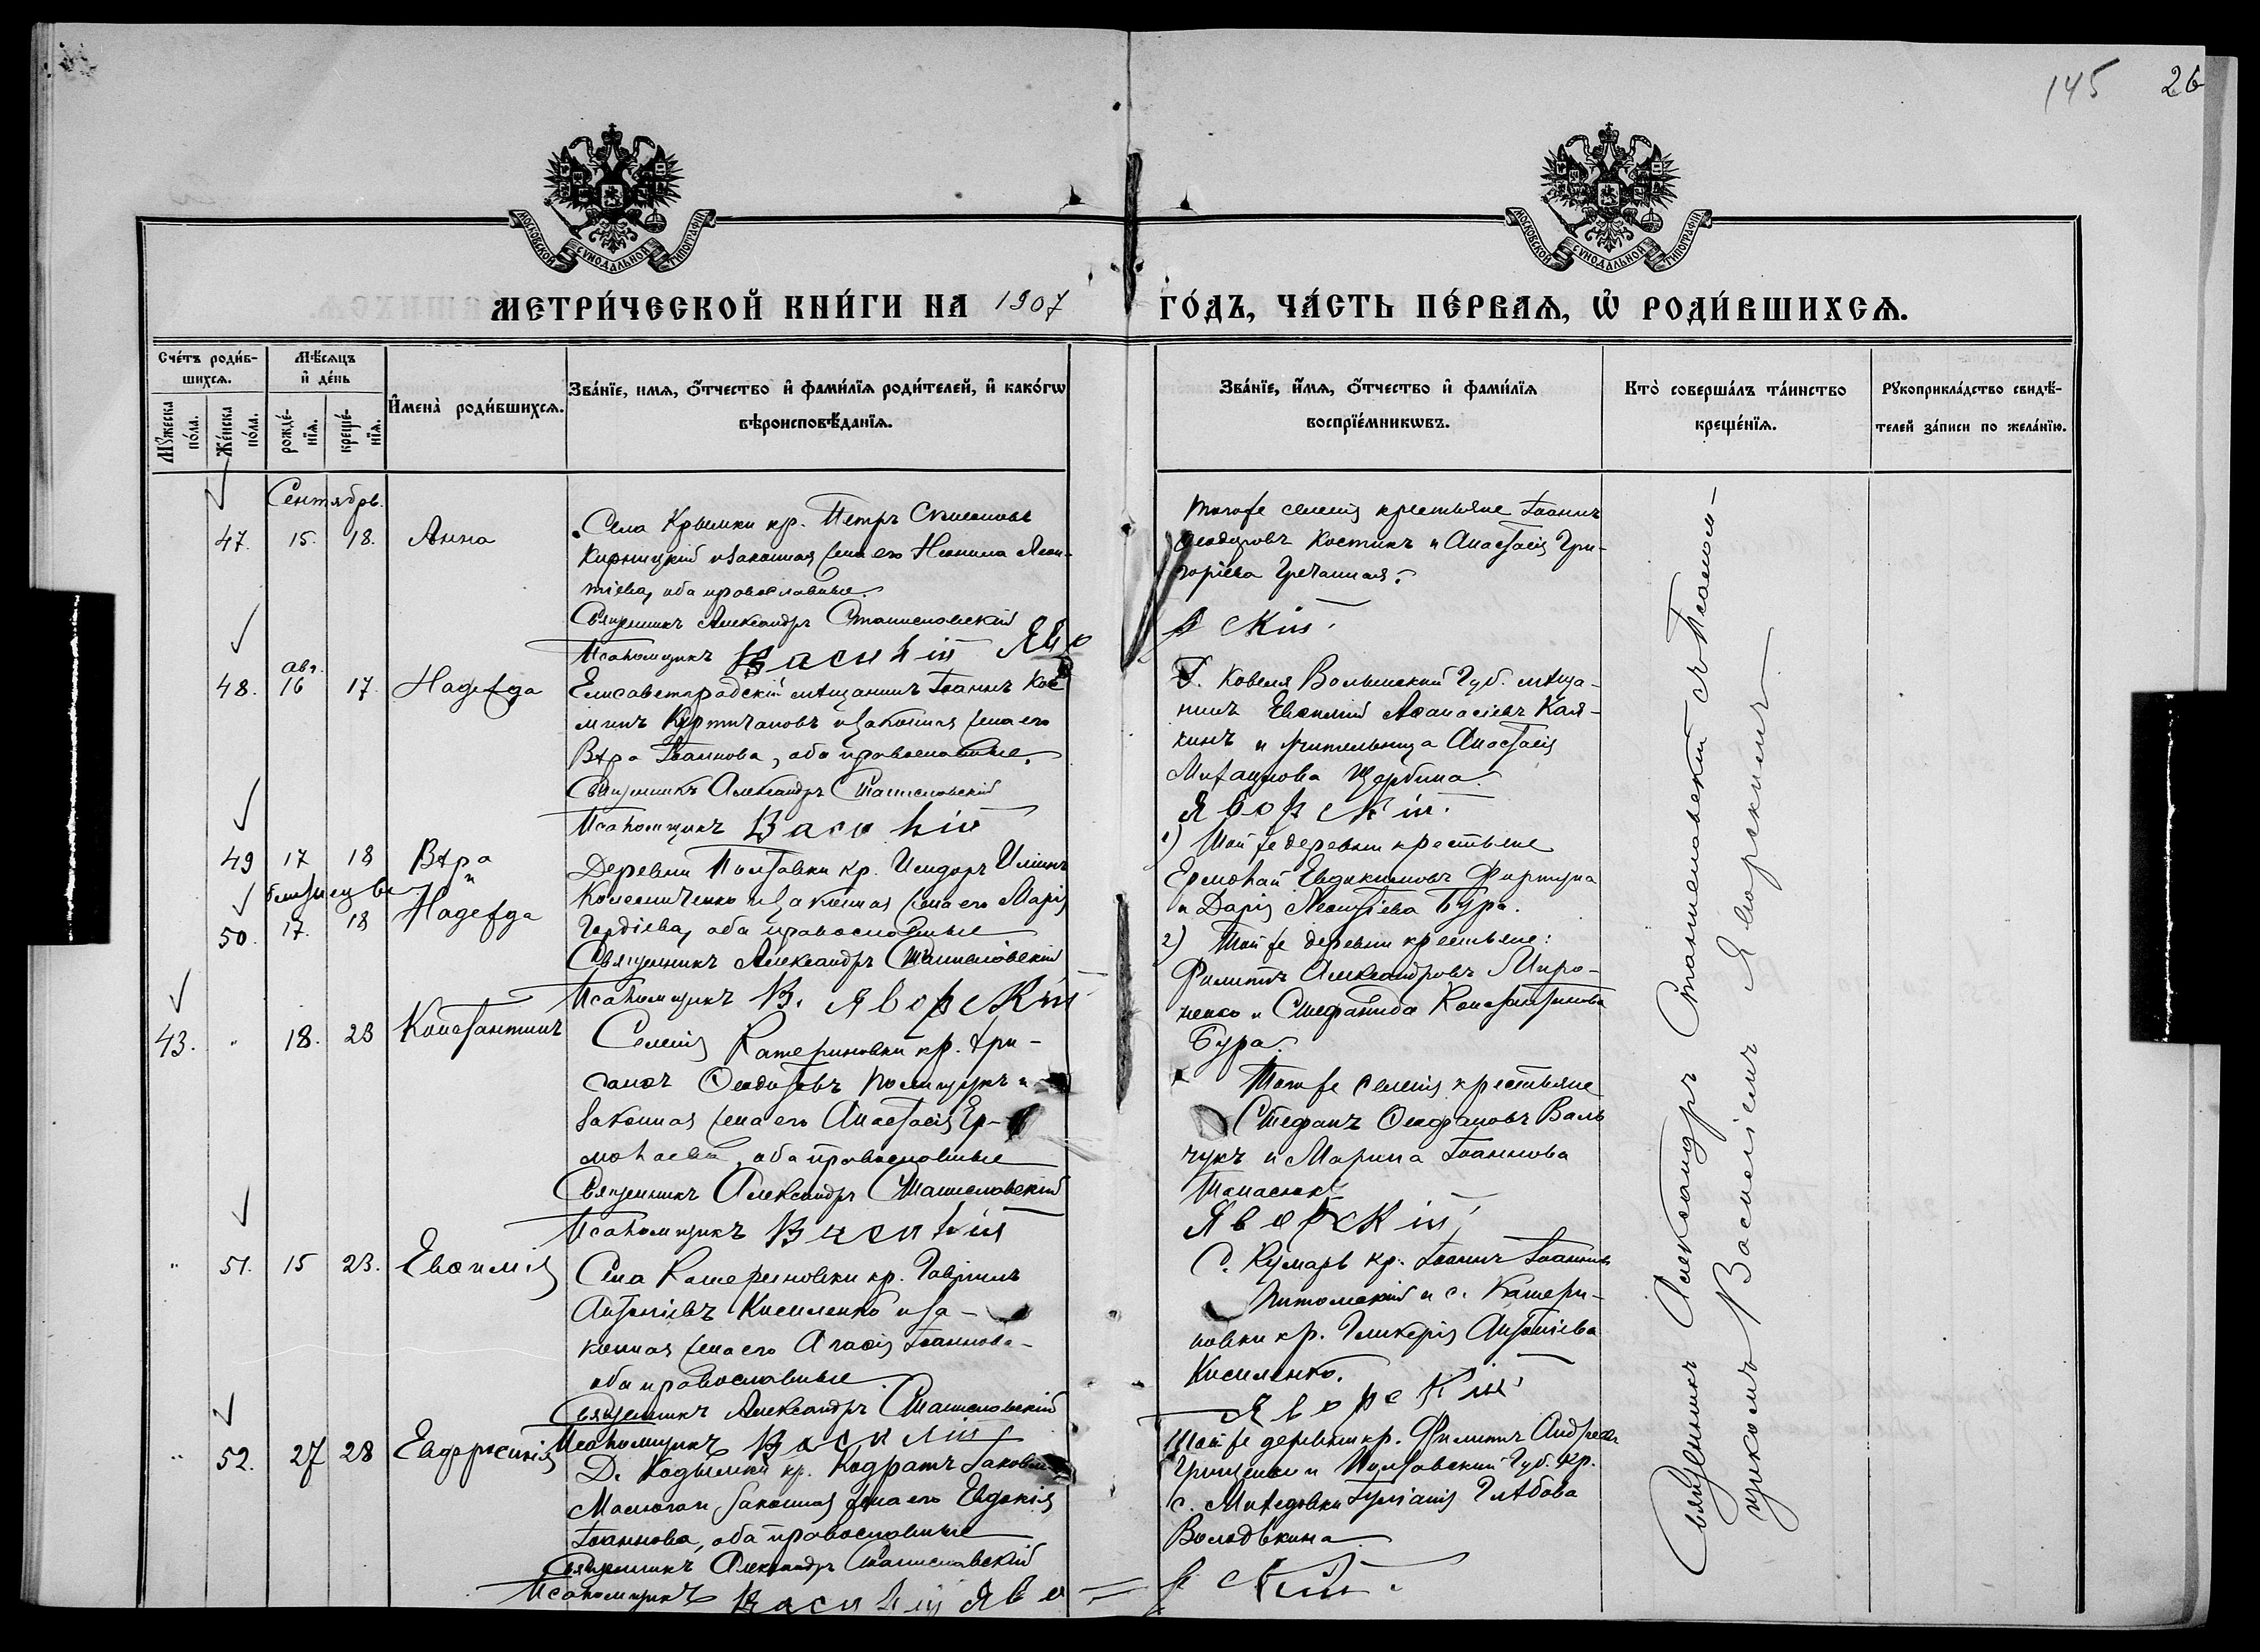 145 26
МОСКОВСКОЙ СѴНОДАЛЬНОЙ ТИПОГРАФІИ
МОСКОВСКОЙ СѴНОДАЛЬНОЙ ТИПОГРАФІИ
МЕТРИ́ЧЕСКОЙ КНИ́ГИ НА 1907 ГО́ДЪ, ЧА́СТЬ ПЕ́РВАѦ, Ѡ҆ РОДИ́ВШИХСѦ.
Сче́тъ роди́в-
шихсѧ.
Мꙋ́жеска
по́ла.
Же́нска
по́ла.
Мѣ́сѧцъ
и҆ де́нь
рожде́-
нїѧ.
креще́-
нїѧ.
И҆мена̀ роди́вшихсѧ.
Зва́нїе, имѧ, ѻ҆́тчество и҆ фами́лїѧ роди́телей, и҆ како́гѡ
вѣроисповѣ́данїѧ.
Зва́нїе, и҆́мѧ, ѻ҆́тчество и҆ фами́лїѧ
воспрїе́мникѡвъ.
Кто̀ соверша́лъ та́инство
креще́нїѧ.
Рꙋкоприкла́дство свидѣ́-
телей за́писи по жела́нїю.
Сентябрь.
47. 15. 18. Анна
Села Крымки кр. Петръ
законная жена его Неонила Леон-
тіева, оба православные.
Священникъ Александръ Станиславскій
Псаломщикъ Василій Яво
того же селенія крестьяне Іоаннъ
Ѳеодоровъ Костикъ и Анастасія Гри-
горіева Гречаная.
рскій
48. авг. 16 17 Надежда
Елисаветградскій мѣщанинъ Іоаннъ Кос
минъ и законная жена его
Вѣра Іоаннова, оба православные.
Священникъ Александръ Станиславскій
Псаломщикъ Василій
Г. Ковеля Волынской Губ. мѣща-
нинъ Евѳимій Аѳанасіевъ Каля-
кинъ и учительница Анастасія
Михаилова Щербина.
Яворскій.
49 17 18 Вѣра
близнецы и
50. 17. 18 Надежда
Деревни Полтавки кр. Исидоръ
Колесниченко и законная жена его Марія
Гордіева, оба православные
Священникъ Александръ Станиславскій
Псаломщикъ В. Яворскій
1) Той же деревни крестьяне
Ермолай Евдокимовъ Фуртуна
и Дарія Леонтіева Бура.
2) Той же деревни крестьяне:
Филиппъ Александровъ Миро-
ненко и Стефанида Константинова
Бура.
43. " 18. 23 Константинъ
Селенія Катериновки кр. Хри-
санѳъ Полищукъ и
законная жена его Анастасія Ер-
молаева, оба православные
Священникъ Александръ Станиславскій
Псаломщикъ Василій
Того же селенія крестьяне
Стефанъ Ѳеофановъ Валь
чукъ и Марина Іоаннова
Танасюкъ
Яворскій
" 51. 15 23. Евѳимія
Села Катериновки кр. Гавріилъ
Антоніевъ Кисиленко и за-
конная жена его Агаѳія Іоаннова
оба православные.
Священникъ Александръ Станиславскій
Псаломщикъ Василій
С. кр. Іоаннъ Іоанновъ
и с. Катери-
новки кр. Гликерія Антоніева
Кисиленко.
Яворскій
" 52. 27 28 Евфросинія
Д. кр. Кодратъ Іаковлевъ
законная жена его Евдокія
Іоаннова, оба православные
Священникъ Александръ Станиславскій
Псаломщикъ Василій Яво
Той же деревни кр. Филиппъ Андреевъ
Грищенко и Полтавской Губ. кр.
с. Іуліанія Глѣбова
Володькина.
рскій.
Священникъ Александръ Станиславскій съ Псалом-
щикомъ Василіемъ Яворскимъ